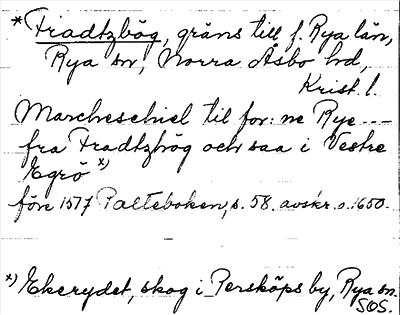 *Fradtzbög, gräns till f. Rya län,
Rya sn, Norra Åsbo hd,
Krist. l.
Marcheschiel til for:ne Rye ---
fra Fradtzbög och saa i Vestre
Egrö x)
före 1577 Palteboken, s. 58. avskr. o. 1650.
x) Ekerydet, skog i Persköps by, Rya sn.
SOS.